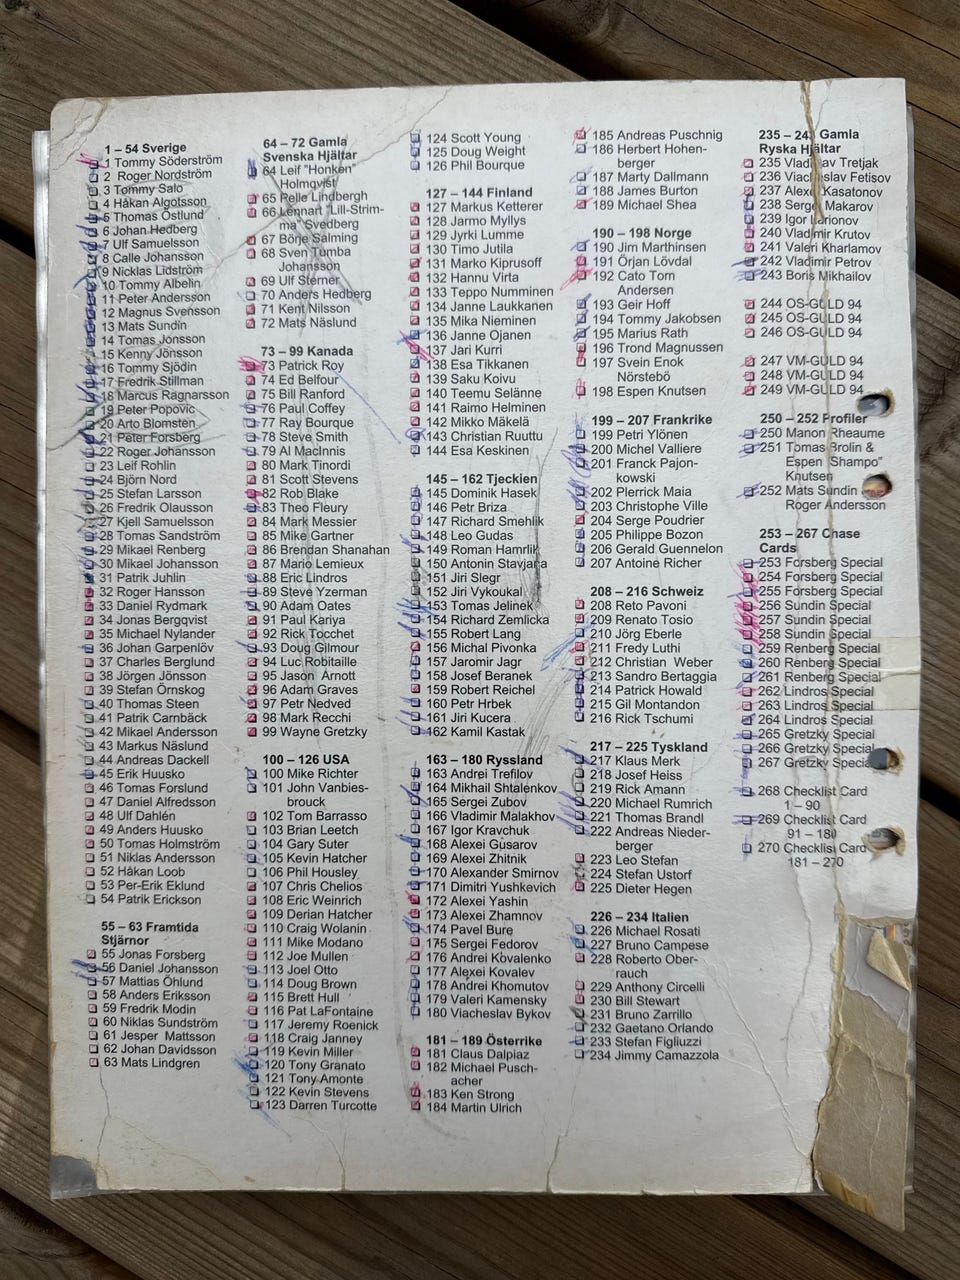 1 – 54 Sverige
1 Tommy Söderström
2 Roger Nordström
3 Tommy Salo
4 Håkan Algotsson
5 Thomas Östlund
6 Johan Hedberg
7 Ulf Samuelsson
8 Calle Johansson
9 Nicklas Lidström
10 Tommy Albelin
11 Peter Andersson
12 Magnus Svensson
13 Mats Sundin
14 Tomas Jonsson
15 Kenny Jönsson
16 Tommy Sjödin
17 Fredrik Stillman
18 Marcus Ragnarsson
19 Peter Popovic
20 Arto Blomsten
21 Peter Forsberg
22 Roger Johansson
23 Leif Rohlin
24 Björn Nord
25 Stefan Larsson
26 Fredrik Olausson
27 Kjell Samuelsson
28 Tomas Sandström
29 Mikael Renberg
30 Mikael Johansson
31 Patrik Juhlin
32 Roger Hansson
33 Daniel Rydmark
34 Jonas Bergqvist
35 Michael Nylander
36 Johan Garpenlöv
37 Charles Berglund
38 Jörgen Jönsson
39 Stefan Örnskog
40 Thomas Steen
41 Patrik Carnbäck
42 Mikael Andersson
43 Markus Näslund
44 Andreas Dackell
45 Erik Huusko
46 Tomas Forslund
47 Daniel Alfredsson
48 Ulf Dahlén
49 Anders Huusko
50 Tomas Holmström
51 Niklas Andersson
52 Håkan Loob
53 Per-Erik Eklund
54 Patrik Erickson
55 – 63 Framtida
Stjärnor
55 Jonas Forsberg
56 Daniel Johansson
57 Mattias Öhlund
58 Anders Eriksson
59 Fredrik Modin
60 Niklas Sundström
61 Jesper Mattsson
62 Johan Davidsson
63 Mats Lindgren
64 – 72 Gamla
Svenska Hjältar
64 Leif "Honken"
Holmqvist
65 Pelle Lindbergh
66 Lennart "Lill-Strim-
ma" Svedberg
67 Börje Salming
68 Sven Tumba
Johansson
69 Ulf Sterner
70 Anders Hedberg
71 Kent Nilsson
72 Mats Näslund
73 – 99 Kanada
73 Patrick Roy
74 Ed Belfour
75 Bill Ranford
76 Paul Coffey
77 Ray Bourque
78 Steve Smith
79 Al MacInnis
80 Mark Tinordi
81 Scott Stevens
82 Rob Blake
83 Theo Fleury
84 Mark Messier
85 Mike Gartner
86 Brendan Shanahan
87 Mario Lemieux
88 Eric Lindros
89 Steve Yzerman
90 Adam Oates
91 Paul Kariya
92 Rick Tocchet
93 Doug Gilmour
94 Luc Robitaille
95 Jason Arnott
96 Adam Graves
97 Petr Nedved
98 Mark Recchi
99 Wayne Gretzky
100 – 126 USA
100 Mike Richter
101 John Vanbies-
brouck
102 Tom Barrasso
103 Brian Leetch
104 Gary Suter
105 Kevin Hatcher
106 Phil Housley
107 Chris Chelios
108 Eric Weinrich
109 Derian Hatcher
110 Craig Wolanin
111 Mike Modano
112 Joe Mullen
113 Joel Otto
114 Doug Brown
115 Brett Hull
116 Pat LaFontaine
117 Jeremy Roenick
118 Craig Janney
119 Kevin Miller
120 Tony Granato
121 Tony Amonte
122 Kevin Stevens
123 Darren Turcotte
124 Scott Young
125 Doug Weight
126 Phil Bourque
127 – 144 Finland
127 Markus Ketterer
128 Jarmo Myllys
129 Jyrki Lumme
130 Timo Jutila
131 Marko Kiprusoff
132 Hannu Virta
133 Teppo Numminen
134 Janne Laukkanen
135 Mika Nieminen
136 Janne Ojanen
137 Jari Kurri
138 Esa Tikkanen
139 Saku Koivu
140 Teemu Selänne
141 Raimo Helminen
142 Mikko Mäkelä
143 Christian Ruuttu
144 Esa Keskinen
145 – 162 Tjeckien
145 Dominik Hasek
146 Petr Briza
147 Richard Smehlik
148 Leo Gudas
149 Roman Hamrlik
150 Antonin Stavjana
151 Jiri Slegr
152 Jiri Vykoukal
153 Tomas Jelinek
154 Richard Zemlicka
155 Robert Lang
156 Michal Pivonka
157 Jaromir Jagr
158 Josef Beranek
159 Robert Reichel
160 Petr Hrbek
161 Jiri Kucera
162 Kamil Kastak
163 – 180 Ryssland
163 Andrei Trefilov
164 Mikhail Shtalenkov
165 Sergei Zubov
166 Vladimir Malakhov
167 Igor Kravchuk
168 Alexei Gusarov
169 Alexei Zhitnik
170 Alexander Smirnov
171 Dimitri Yushkevich
172 Alexei Yashin
173 Alexei Zhamnov
174 Pavel Bure
175 Sergei Fedorov
176 Andrei Kovalenko
177 Alexei Kovalev
178 Andrei Khomutov
179 Valeri Kamensky
180 Viacheslav Bykov
181 – 189 Österrike
181 Claus Dalpiaz
182 Michael Pusch-
acher
183 Ken Strong
184 Martin Ulrich
185 Andreas Puschnig
186 Herbert Hohen-
berger
187 Marty Dallmann
188 James Burton
189 Michael Shea
190 – 198 Norge
190 Jim Marthinsen
191 Örjan Lövdal
192 Cato Tom
Andersen
193 Geir Hoff
194 Tommy Jakobsen
195 Marius Rath
196 Trond Magnussen
197 Svein Enok
Nörstebö
198 Espen Knutsen
199 – 207 Frankrike
199 Petri Ylönen
200 Michel Valliere
201 Franck Pajon-
kowski
202 Pierrick Maia
203 Christophe Ville
204 Serge Poudrier
205 Philippe Bozon
206 Gerald Guennelon
207 Antoine Richer
208 – 216 Schweiz
208 Reto Pavoni
209 Renato Tosio
210 Jörg Eberle
211 Fredy Luthi
212 Christian Weber
213 Sandro Bertaggia
214 Patrick Howald
215 Gil Montandon
216 Rick Tschumi
217 – 225 Tyskland
217 Klaus Merk
218 Josef Heiss
219 Rick Amann
220 Michael Rumrich
221 Thomas Brandl
222 Andreas Nieder-
berger
223 Leo Stefan
224 Stefan Ustorf
225 Dieter Hegen
226 – 234 Italien
226 Michael Rosati
227 Bruno Campese
228 Roberto Ober-
rauch
229 Anthony Circelli
230 Bill Stewart
231 Bruno Zarrillo
232 Gaetano Orlando
233 Stefan Figliuzzi
234 Jimmy Camazzola
235 – 243 Gamla
Ryska Hjältar
235 Vladislav Tretjak
236 Viacheslav Fetisov
237 Alexei Kasatonov
238 Sergei Makarov
239 Igor Larionov
240 Vladimir Krutov
241 Valeri Kharlamov
242 Vladimir Petrov
243 Boris Mikhailov
244 OS-GULD 94
245 OS-GULD 94
246 OS-GULD 94
247 VM-GULD 94
248 VM-GULD 94
249 VM-GULD 94
250 – 252 Profiler
250 Manon Rheaume
251 Tomas Brolin &
Espen "Shampo"
Knutsen
252 Mats Sundin
Roger Andersson
253 – 267 Chase
Cards
253 Forsberg Special
254 Forsberg Special
255 Forsberg Special
256 Sundin Special
257 Sundin Special
258 Sundin Special
259 Renberg Special
260 Renberg Special
261 Renberg Special
262 Lindros Special
263 Lindros Special
264 Lindros Special
265 Gretzky Special
266 Gretzky Special
267 Gretzky Special
268 Checklist Card
1 – 90
269 Checklist Card
91 – 180
270 Checklist Card
181 – 270